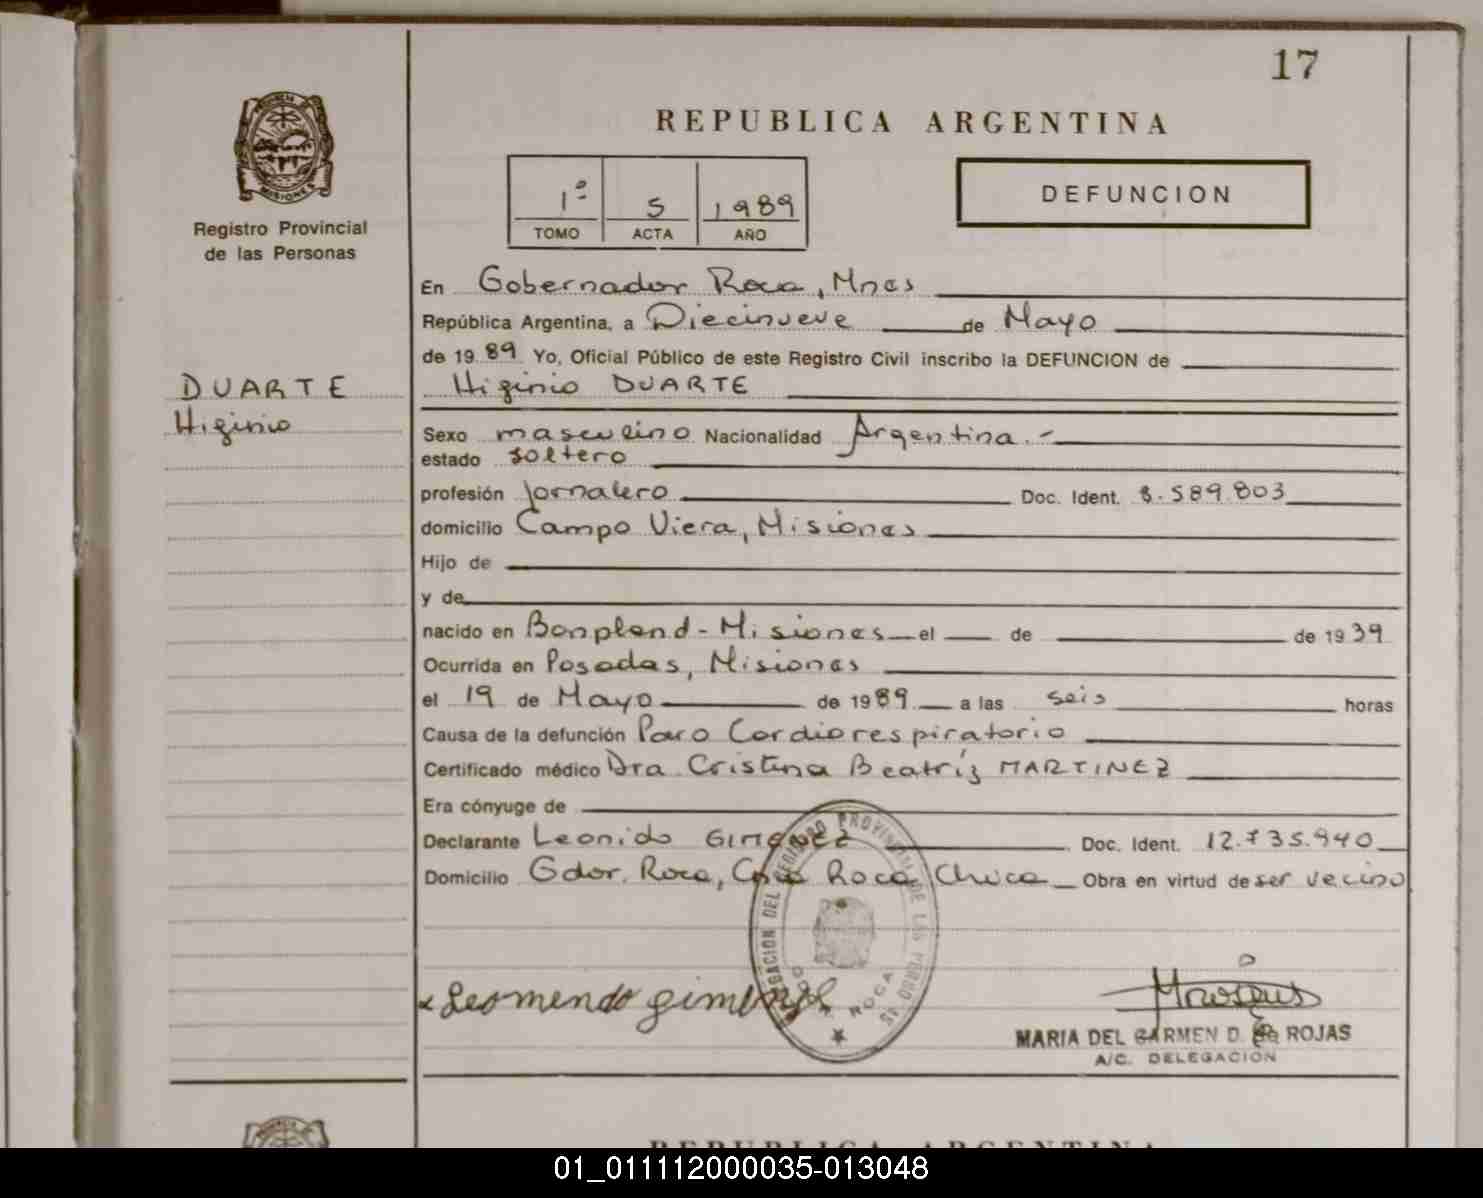 17
REPUBLICA ARGENTINA
PROVINCIA DE MISIONES
Registro Provincial
de las Personas
1º 5 1989
TOMO ACTA AÑO
DEFUNCION
En Gobernador Roca, Mnes
República Argentina, a Diecinueve de Mayo
de 1989 Yo, Oficial Público de este Registro Civil inscribo la DEFUNCION de
DUARTE
Higinio
Higinio DUARTE
Sexo masculino Nacionalidad Argentina.-
estado soltero
profesión Jornalero Doc. Ident. 8.589.803
domicilio Campo Viera, Misiones
Hijo de
y de
nacido en Bonpland - Misiones el de de 1939
Ocurrida en Posadas, Misiones
el 19 de Mayo de 1989 a las seis horas
Causa de la defunción Paro Cardiorespiratorio
Certificado médico Dra. Cristina Beatríz MARTINEZ
Era cónyuge de
Declarante Leonido GIMENEZ Doc. Ident. 12.735.940
Domicilio Gdor. Roca, Roca Chica Obra en virtud de ser vecino
DELEGACION DEL REGISTRO PROVINCIAL DE LAS PERSONAS
ROCA
MARIA DEL CARMEN D. de ROJAS
A/C. DELEGACION
REPUBLICA ARGENTINA
01_011112000035-013048